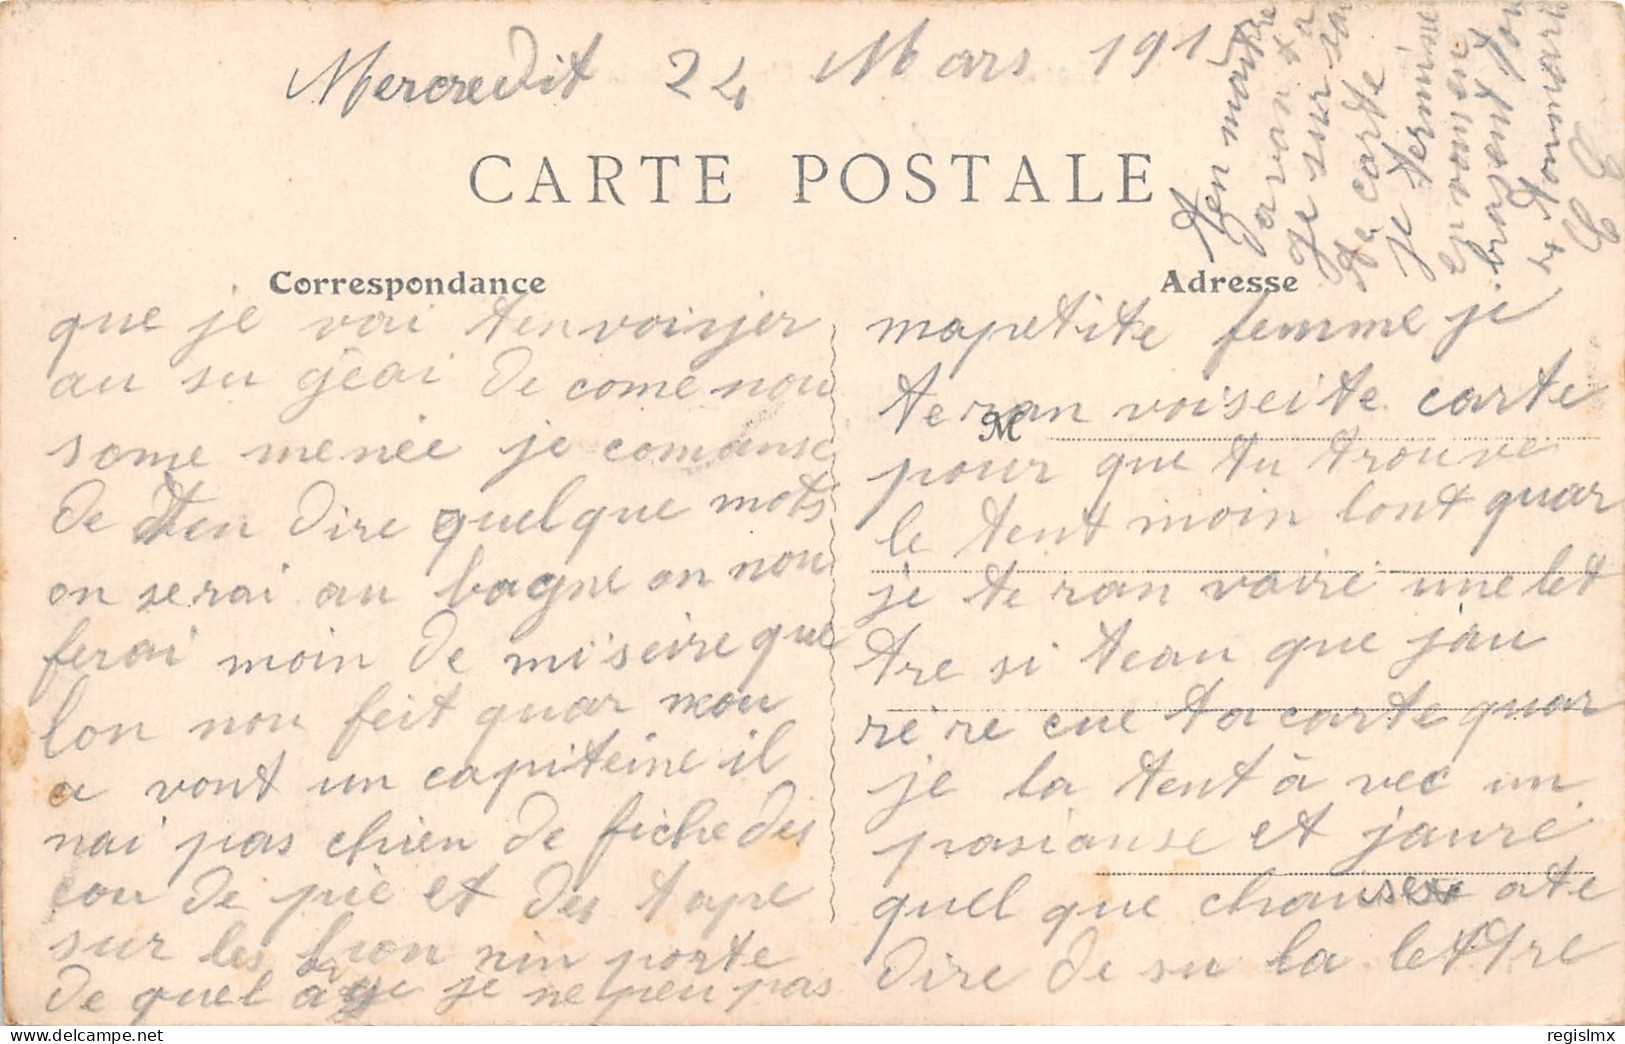 Mercredit 24 Mars 1915
CARTE POSTALE
Correspondance
Adresse
M
mapetite femme je
te ran voiseite carte
pour que tu trouve
le tent moin lont quar
je te ran vaire une let
tre si teau que j'au
rére cue ta carte quar
je la tent à vec un
pasianse et jauré
quel que chause ate
dire de su la lettre
que je vai tenvoijer
au su geai de come nou
some menée je comanse
de ten dire quelque mots
on serai au bagne on nou
ferai moin de miseire que
lon nou feit quar nou
a vont un capiteine il
nai pas chien de fiche des
cou de pié et des tape
sur les front nin porte
de quel age je ne peu pas
ten maitre
davanta
ge sur sa
ta carte
Je termine
en